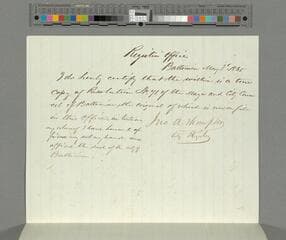 Register's Office
Baltimore May
I do hereby certify that the within is a true
copy of Resolution No 71 of the Mayor and City Coun
cil of Baltimore the original of which is now on file
in this Office in testimony
whereof I have hereunto
set my hand and
affixed the seal of the City
Baltimore
Jno. A. Thompson
City Register